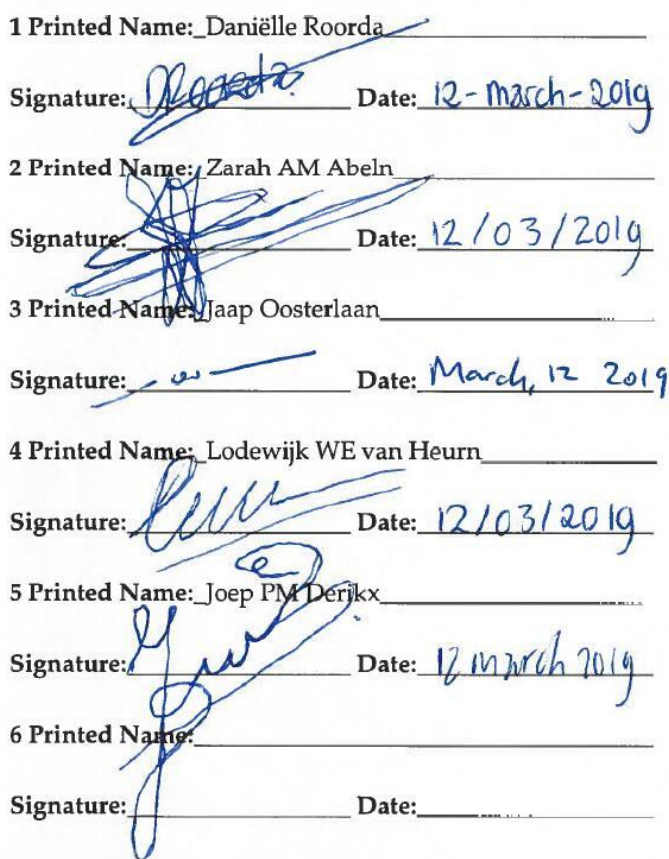 1 Printed Name: Daniëlle Roorda
Signature: DRoorda Date: 12-march-2019
2 Printed Name: Zarah AM Abeln
Signature: Date: 12/03/2019
3 Printed Name: Jaap Oosterlaan
Signature: Date: March, 12 2019
4 Printed Name: Lodewijk WE van Heurn
Signature: Date: 12/03/2019
5 Printed Name: Joep PM Derikx
Signature: Date: 12 march 2019
6 Printed Name:
Signature: Date: